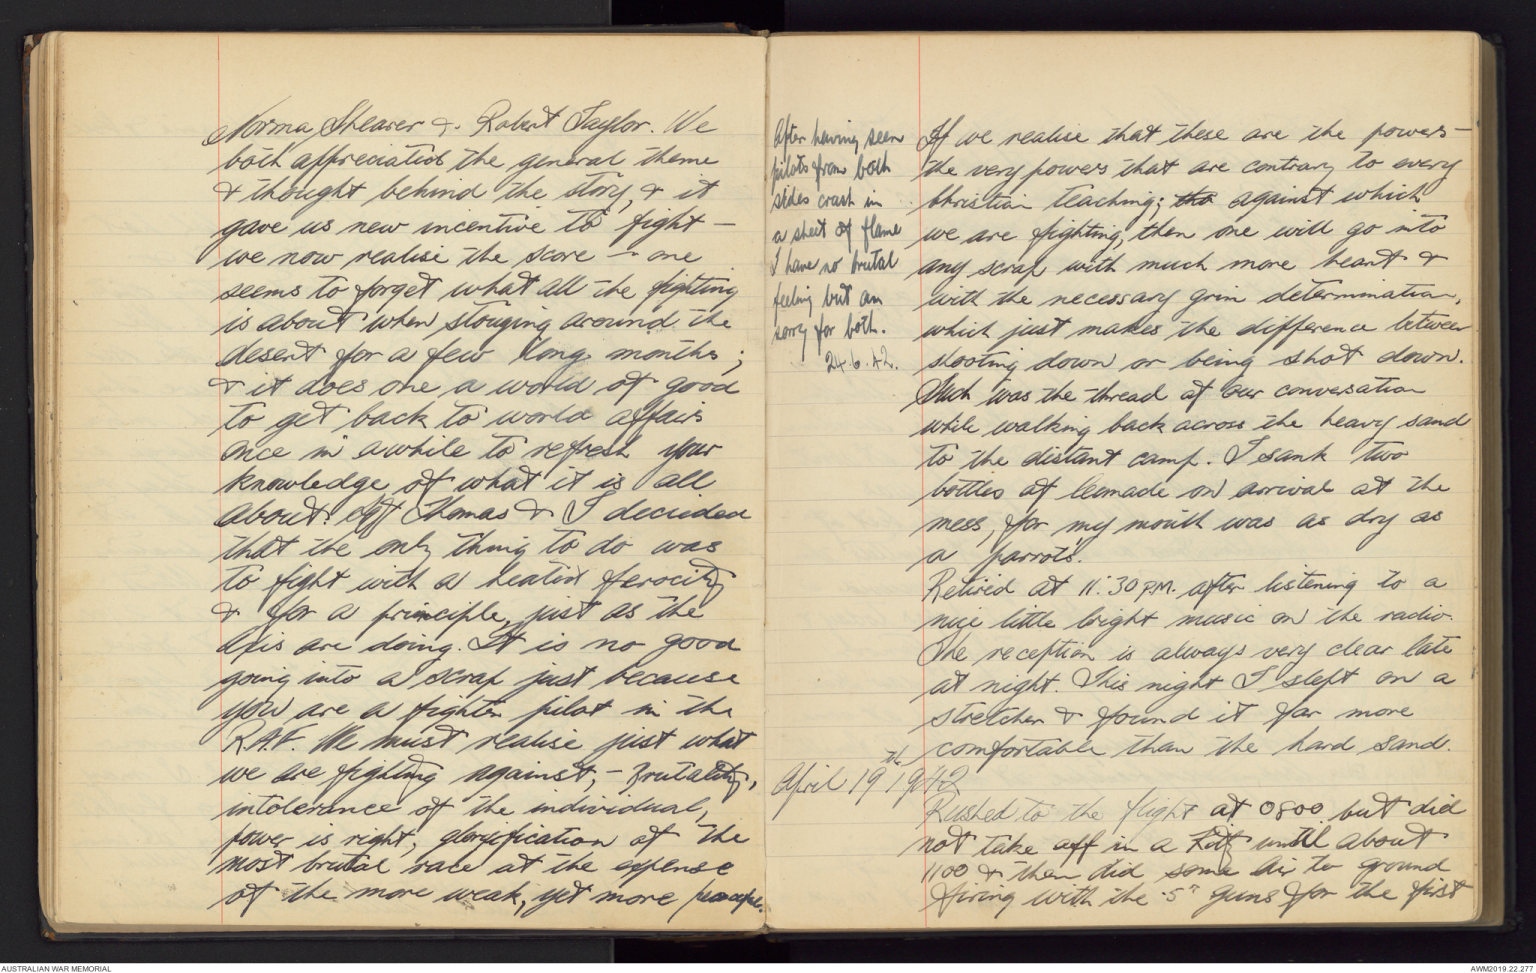 Norma Shearer & Robert Taylor. We
both appreciated the general theme
& thought behind the story, & it
gave us new incentive to fight –
we now realise the score – one
seems to forget what all the fighting
is about when stouging around the
desert for a few long months;
& it does one a world of good
to get back to world affairs
once in awhile to refresh your
knowledge of what it is all
about. Thomas & I decided
that the only thing to do was
to fight with a ferocity
& for a principle, just as the
Axis are doing. It is no good
going into a scrap just because
you are a fighter pilot in the
R.A.F. We must realise just what
we are fighting against, – Brutality,
intolerance of the individual,
power is right, gloryification of the
most brutal race at the expense
of the more weak, yet more
After having seen
pilots from both
sides crash in
a sheet of flame
I have no brutal
feeling but am
sorry for both.
24.6.42.
If we realise that these are the powers –
the very powers that are contrary to every
Christian teaching; tho against which
we are fighting, then one will go into
any scrap with much more heart &
with the necessary grim determination,
which just makes the difference between
shooting down or being shot down.
Such was the thread of our conversation
while walking back across the heavy sand
to the distant camp. I sank two
bottles of lemade on arrival at the
mess, for my mouth was as dry as
a parrots.
Retired at 11:30 P.M. after listening to a
nice little bright music on the radio.
The reception is always very clear late
at night. This night I slept on a
stretcher & found it far more
comfortable than the hard sand.
April 19th 1942
Rushed to the flight at 0800 but did
not take off in a Kitty until about
1100 & then did some air to ground
firing with the .5" guns for the first
AUSTRALIAN WAR MEMORIAL
AWM2019.22.277